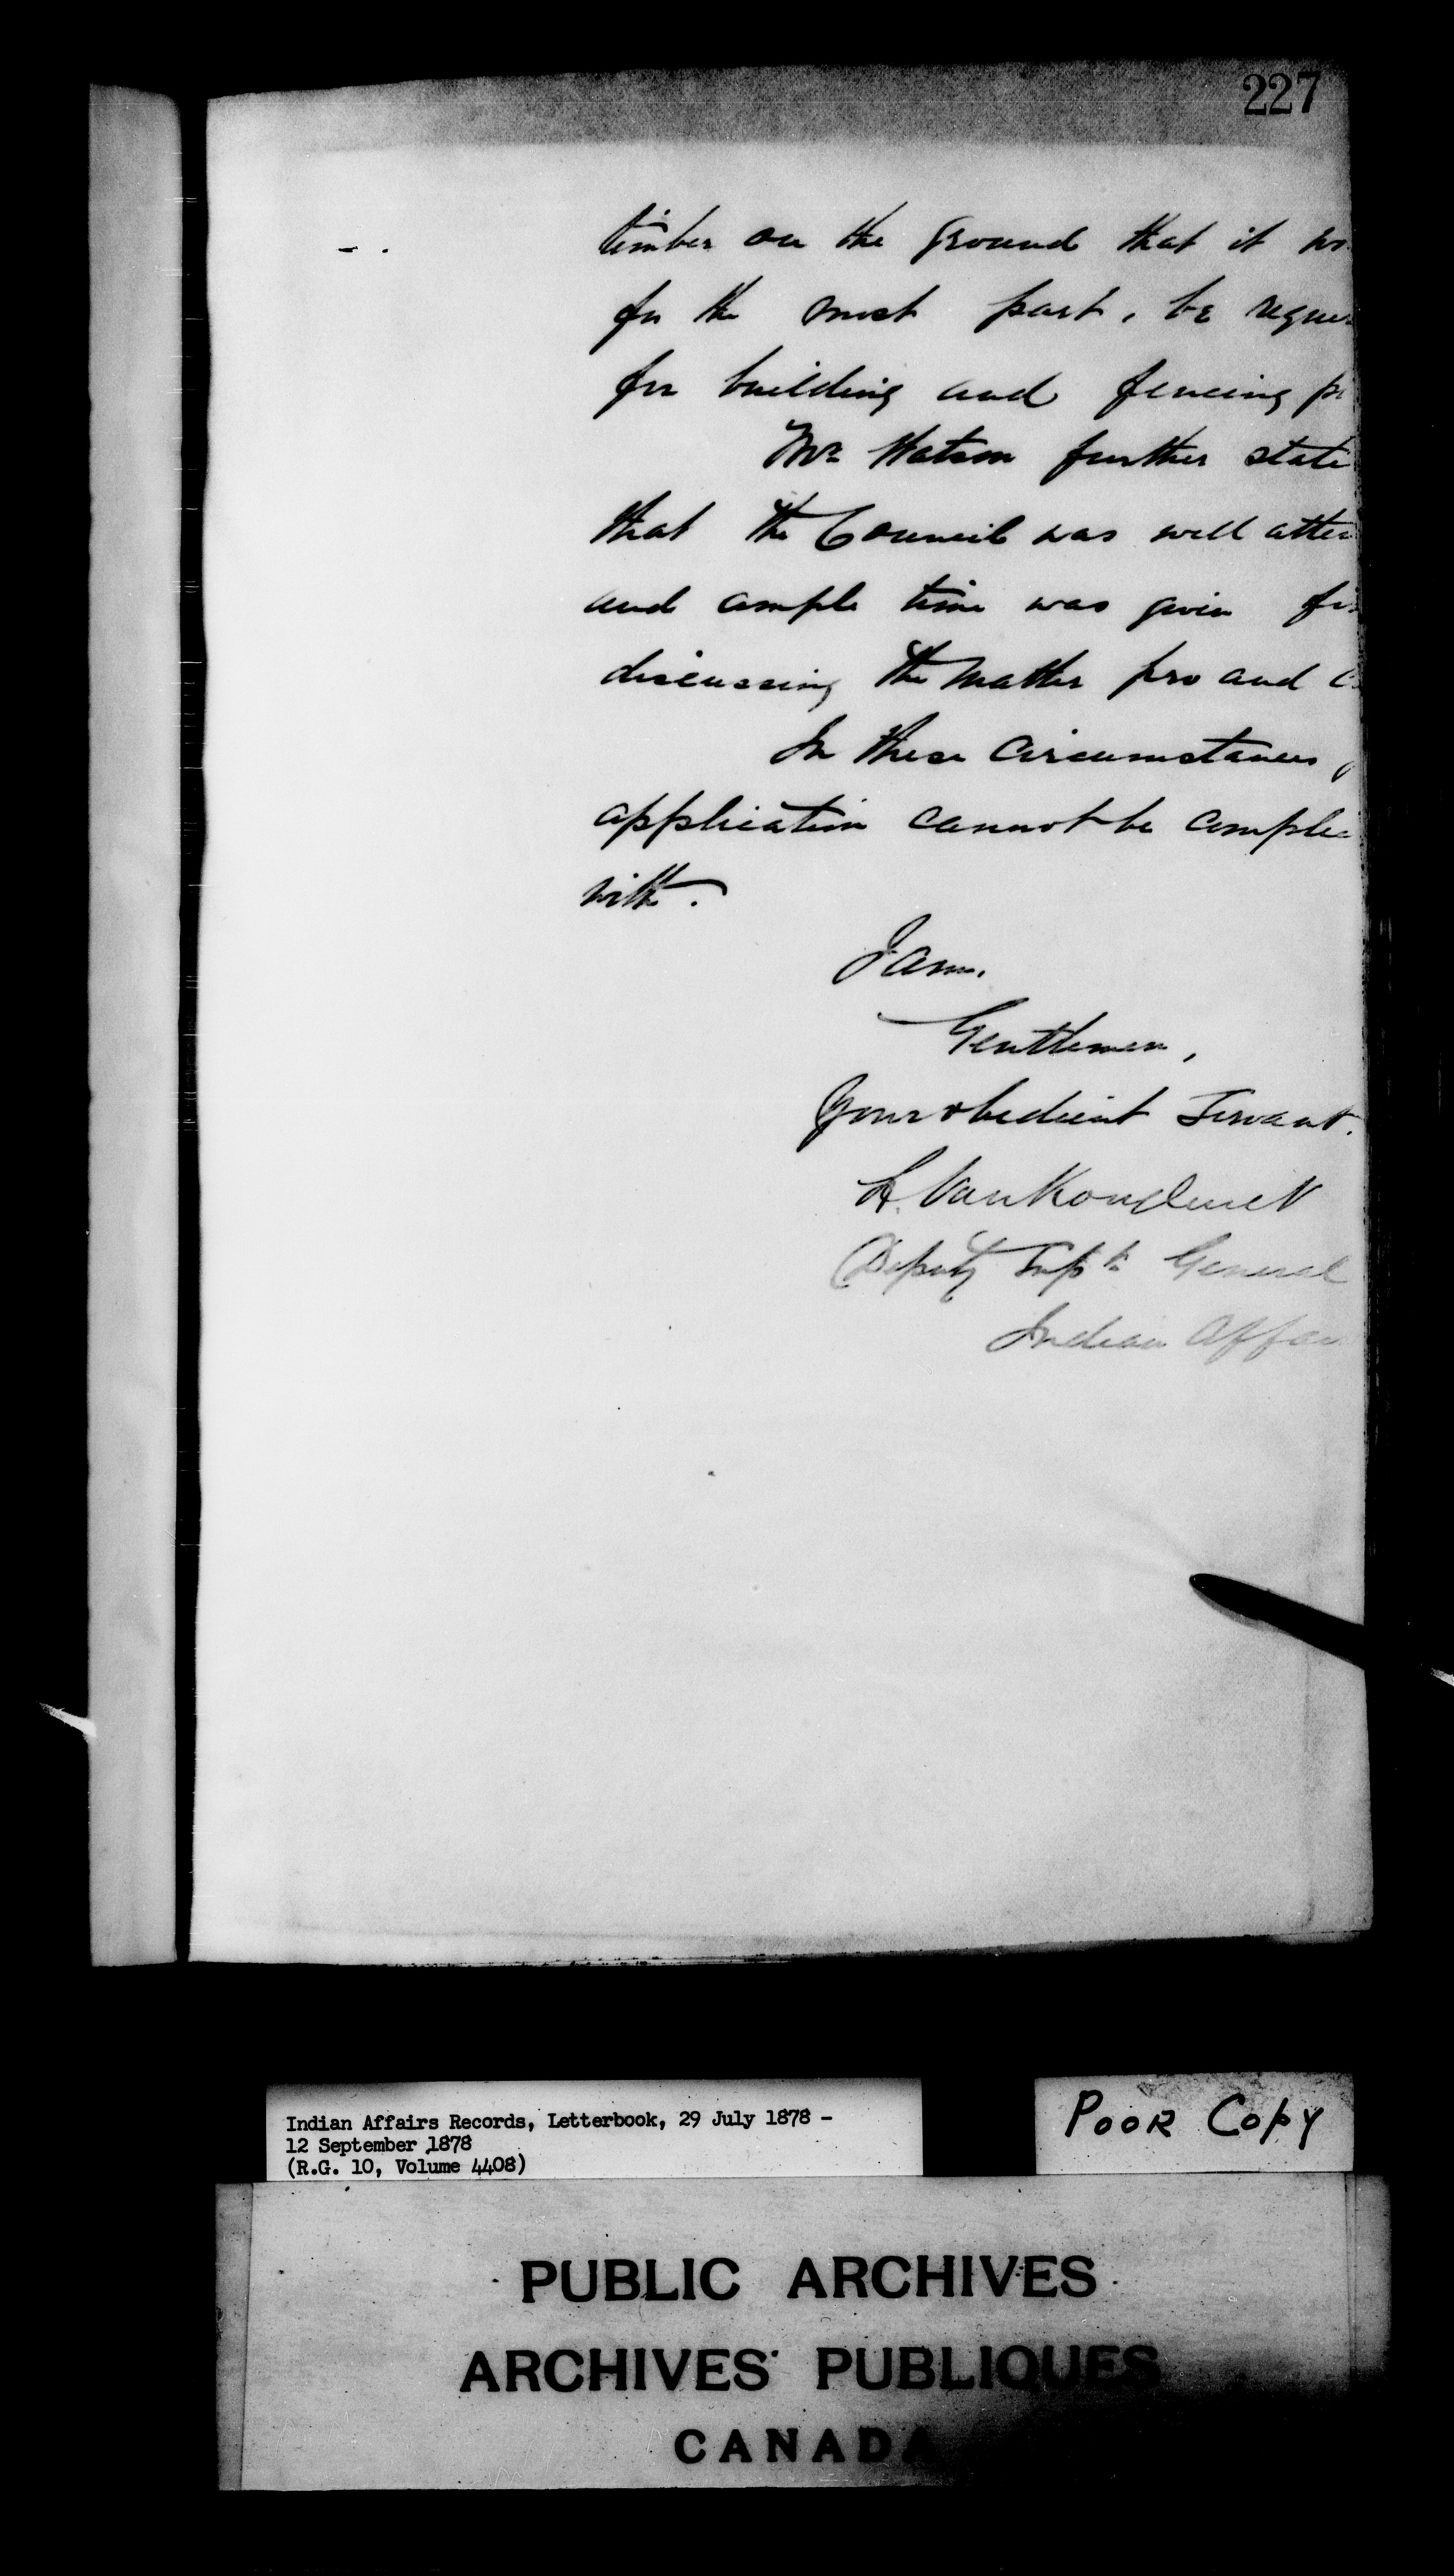 227
timber on the ground that it wo
for the most part, be requi
for building and fencing p
Mr Watson further state
that the Council was well atten
and ample time was given for
discussing the matter pro and c
In these circumstances,
application cannot be complie
with.
I am.
Gentlemen,
Your obedient Servant.
L. VanKoughnet
Deputy Supt. General
Indian Affai
Indian Affairs Records, Letterbook, 29 July 1878 -
12 September 1878
(R.G. 10, Volume 4408)
Poor Copy
PUBLIC ARCHIVES
ARCHIVES PUBLIQUES
CANADA